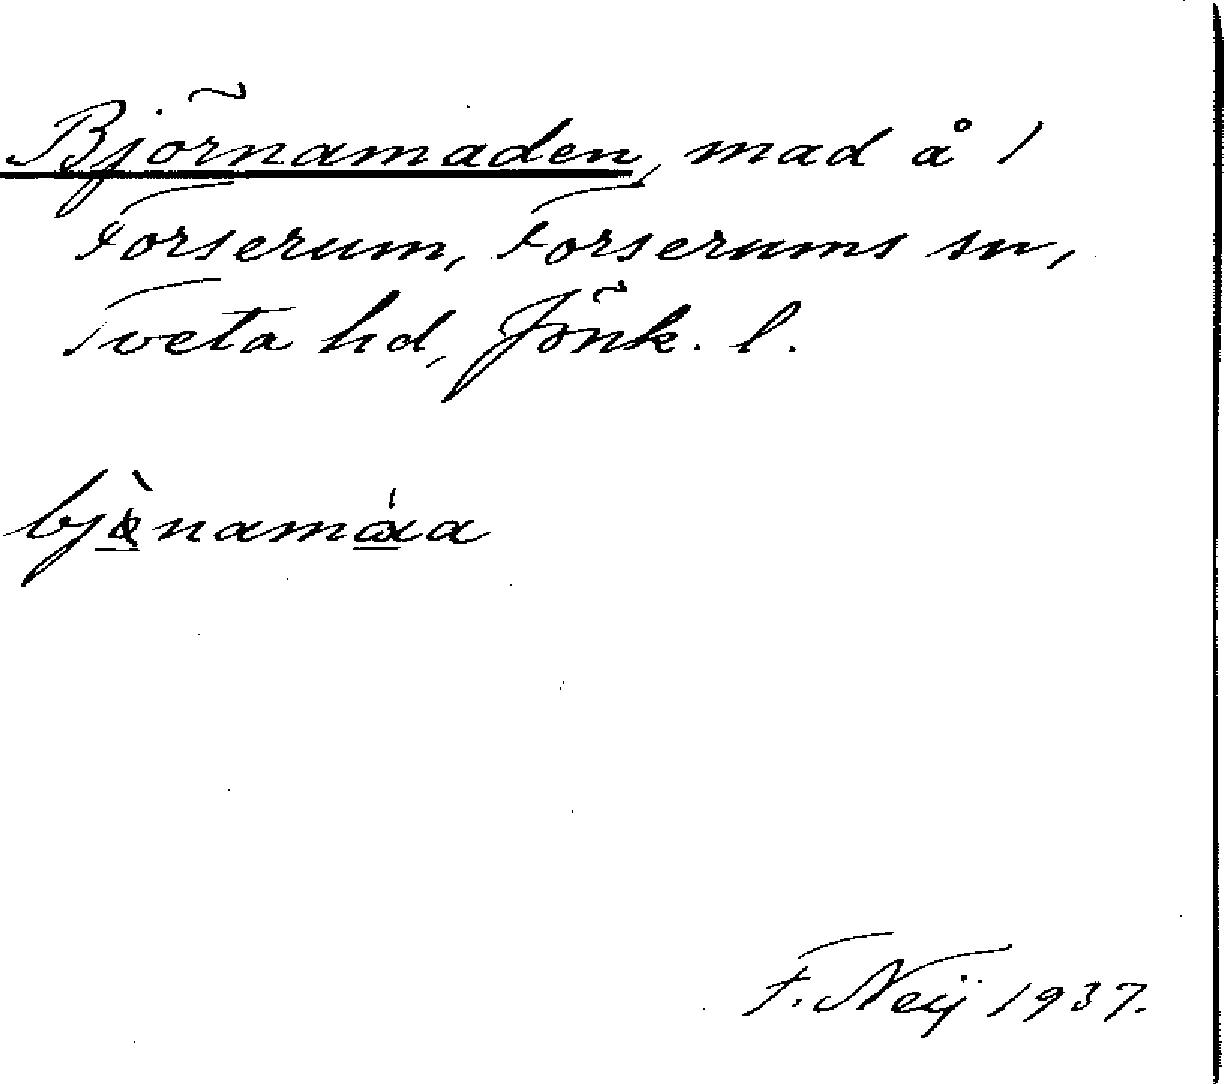 Björnamaden, mad å 1
Forserum, Forserums sn,
Tveta hd, Jönk. l.
F. Neij 1937.